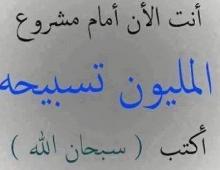 أنت الأن أمام مشروع
المليون تسبيحه
أكتب ( سبحان الله )